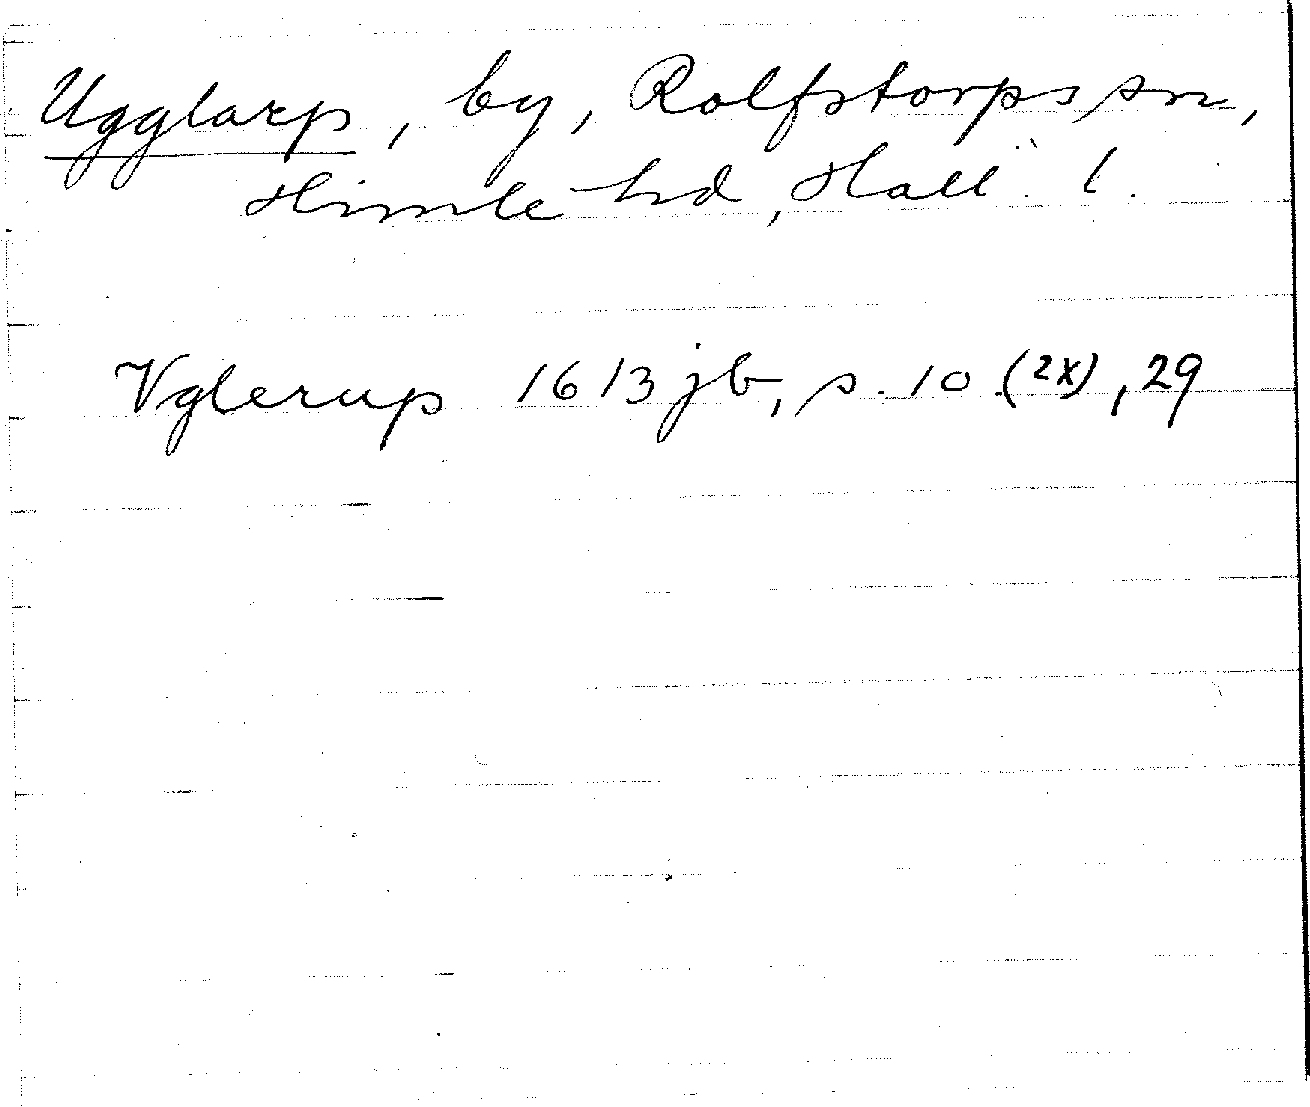 Ugglarp, by, Rolfstorps sn,
Himle hd, Hall. l.
Vglerup 1613 jb, s. 10 (2x), 29